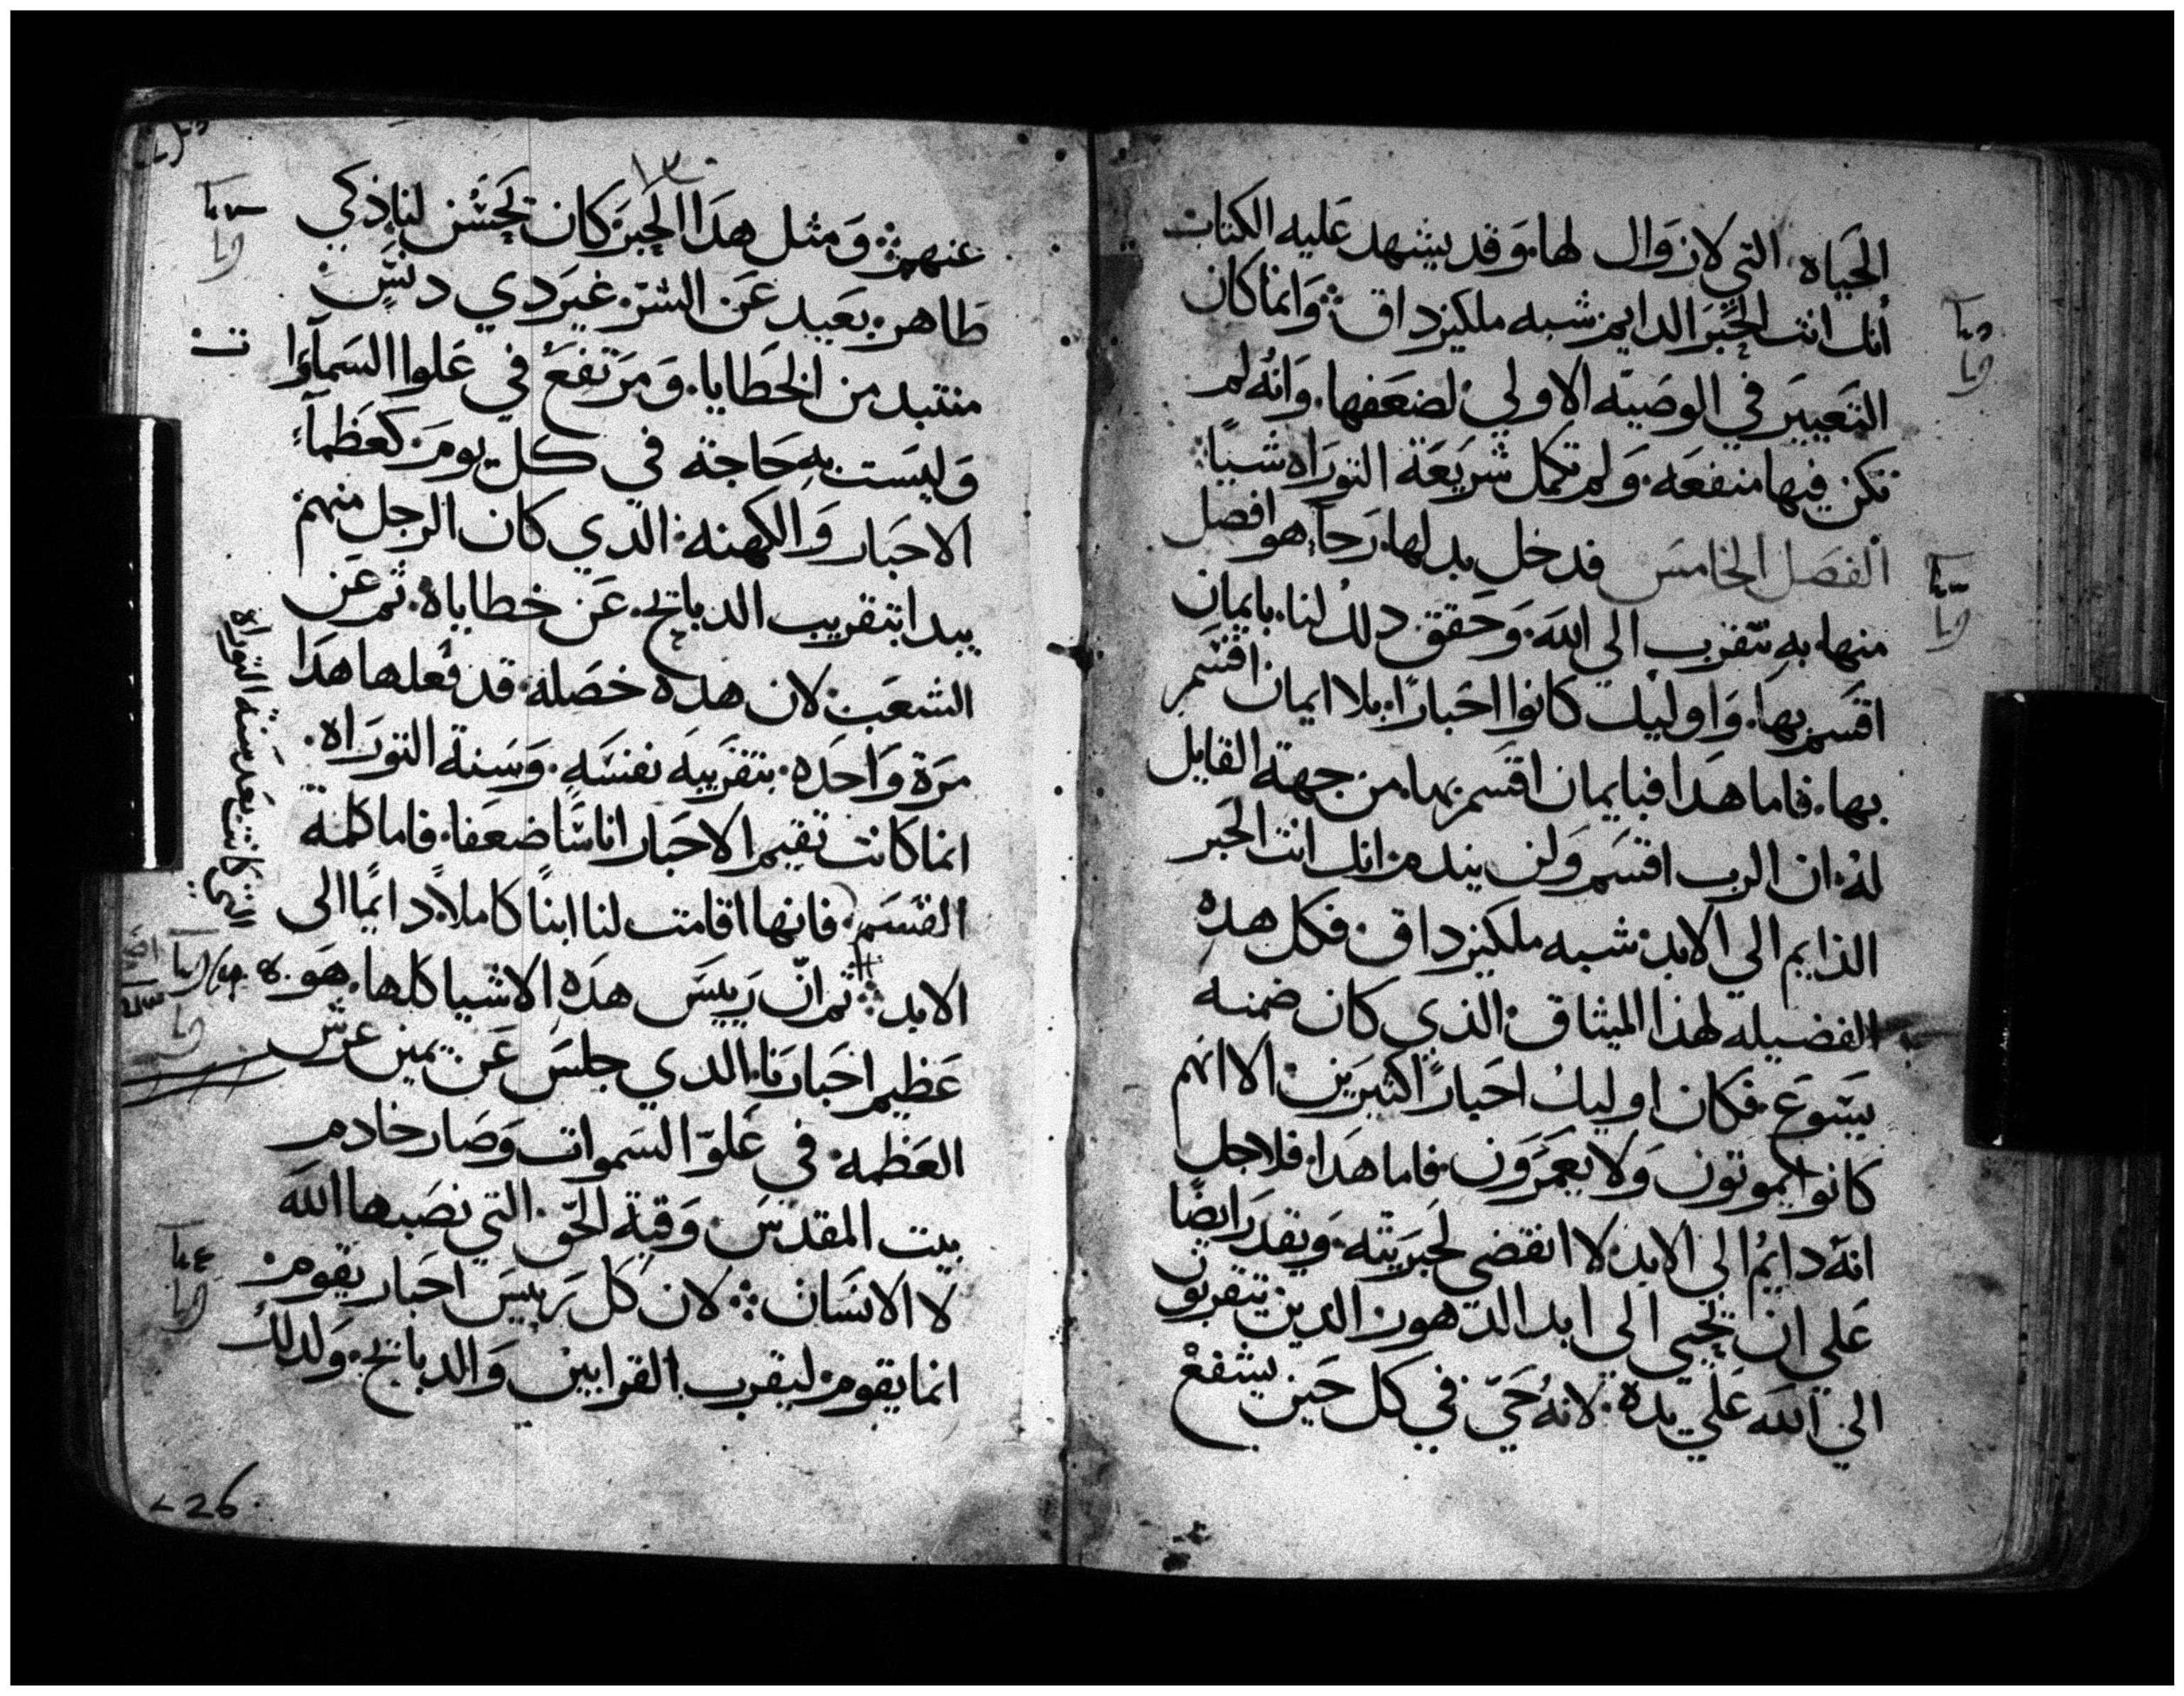 الحَياه التي لا زوال لها. وَقد يشهد عَليه الكتاب
أنك انت الحَبرَ الدايم شبه ملكيزداق ܀ وَانما كان
التَعيير في الوصَيه الاولي لضعَفها. وَانهُ لم
تكن فيها منفعَه. وَلم تكمل شرَيعَة التورَاه شيئًا
الفصَل الخامسَ فدخل بدلها رَجاءٍ هو افضل
منها به نتقرب الي الله. وَحَقق دلكُ لنا. بايمان
اقسَم بها. وَاوليك كانوا احَبارًا. بلا ايمان اقسَم
بها. فاما هدَا فبايمان اقسَم بها. من جهة القايل
لهُ ان الرب اقسَم وَلن يندم انك انت الحَبر
الدايم الي الابد شبه ملكيزداق فكل هدهِ
الفضيله لهذا الميثاق الذي كان ضمنه
يسَوع. فكان اوليك احبارًا كثيرَين الا انهم
كانوا يموتون وَلا يعمرَون. فاما هدَا. فلاجل
انهُ دايمُ الي الابد لا انقضي لحَبرَيته. وَيقدرَ ايضًا
عَلي ان يُحيي الي ابد الدهور الدين يتقربون
الي الله عَلي يدهْ. لانهُ حَيّ في كل حَين يشفعْ
١٣
عنهم ܀ وَمثل هدَا الحَبرَ كان يحَسُن لنا ذكي
طاهر. بعَيد عَن الشرّ. غيرَ دي دنسٍَ
منتبد من الخطايا. وَمرَتفعُ في عَلوا السَمآوَا
ت
وَليسَت بهِ حَاجة في كل يومَ كعَظمآءِ
الاحَبار وَالكهنه الدي كان الرجل منهم
يبدا بتقريب الدبايح. عَن خطاياهْ. ثم عَن
الشعَب لان هدهْ خصَلة. قد فعَلها هدَا
مرَة وَاحَده. بتقرَيبَهَ نفسَهِ. وَسَنة التورَاه.
انما كانت تقيم الاحَبار اناسًَا ضعَفا. فاما كلمة
القسَم فانها اقامت لنا ابنًا كاملا. دايمًا الي
التي كانت بَعَد سَنة التوراة
الابد ܀ ثم انّ رَييسَ هدَهِ الاشيا كلها. هَو
عَظيم احَبارنَا. الدي جلسَ عَن يمين عرش
العَظمه. في عَلوّ السَموات وَصَار خادم
بيت المقدسَ. وَقبة الحَق. التي نصَبها الله
لا الانسَان ܀ لان كل رَييسَ احَبار يقوم
انما يقوم ليقرب القرابين وَالدبايح. وَلدلكُ
226